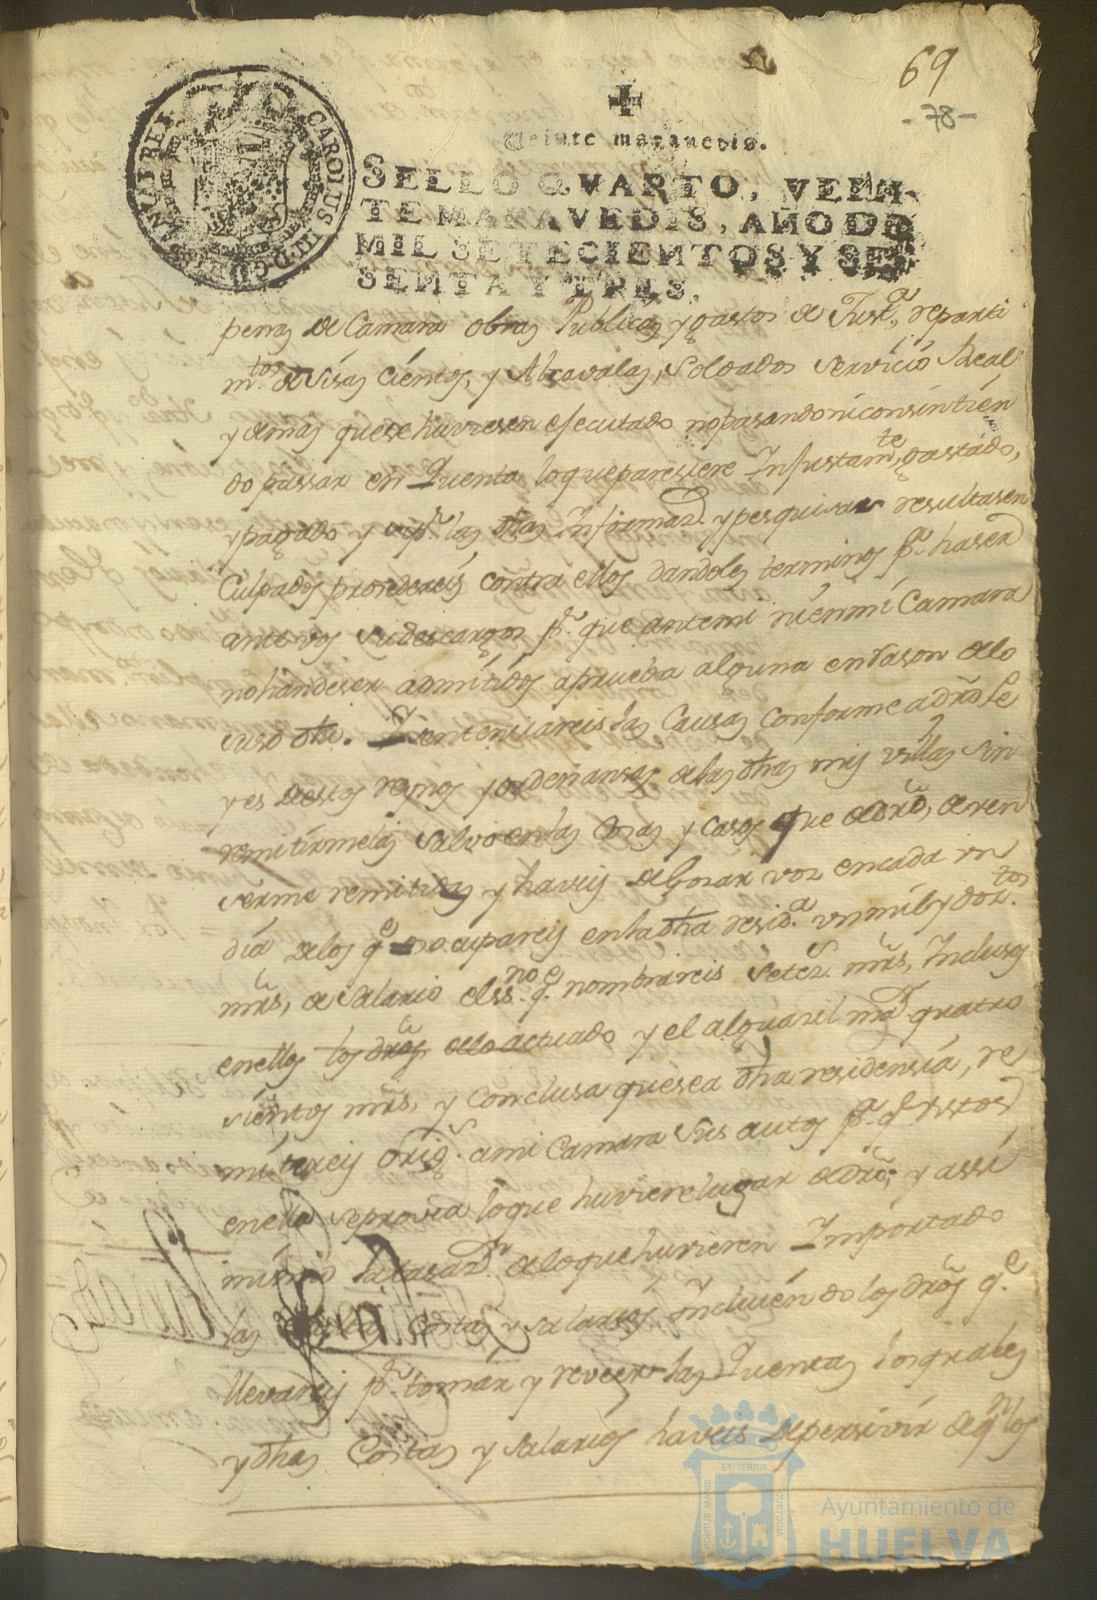 69
-78-
CAROLUS III D. G. HISPANIAR REX
Veinte maravedis.
SELLO QVARTO, VEIN
TE MARAVEDIS, AÑO DE
MIL SETECIENTOS Y SE
SENTA Y TRES.
penas de Camara obras Publicas y gastos de Just.ª, reparti
m.tos de Sisas Cientos, y Alcavalas, Soldados Servicio Real
y demas que se huviesen efecutado no pasando ni consintien
do passar en Quenta lo que paresiere Injustam.te gastado,
y pagado y si p.r las dhas Informaz.s y pesquisas resultasen
Culpados prosedereis contra ellos dandoles terminos p.ª haser
ante vos sus descargos p.r que ante mi ni en mi Camara
no han de ser admitidos a prueba alguna en Rason de lo
suso dho. Sentenciareis las Causas conforme a dro Le
yes destos reynos y ordenansas de las dhas mis villas sin
remitirmelas salvo en las Cosas y casos que de dro, deven
serme remitidas y haveis de Gosar vos en cada un
dia de los q.e os ocupareis en la dha resid.ª un mil y doz.tos
mrs, de Salario el ss.no q.e nombrareis setez.s mrs, Inclusos
en ellos los dros de lo actuado y el alguazil m.r quatro
sientos mrs, y Conclusa que sea dha residensia, re
mitireis orig.s a mi Camara sus autos p.ª q.e vistos
en ella se provea lo que huviere lugar de dro; y assi
mismo la tasaz.n de lo que huvieren Importado
las Costas y salarios Incluiendo los dros q.e
llevareis p.r tomar y reveer las Quentas los quales
y dhas Costas y Salarios haveis de persivir de q.n los
Ayuntamiento de
HUELVA
PORTUS MARIS
ET TERRAE
CUSTODIA